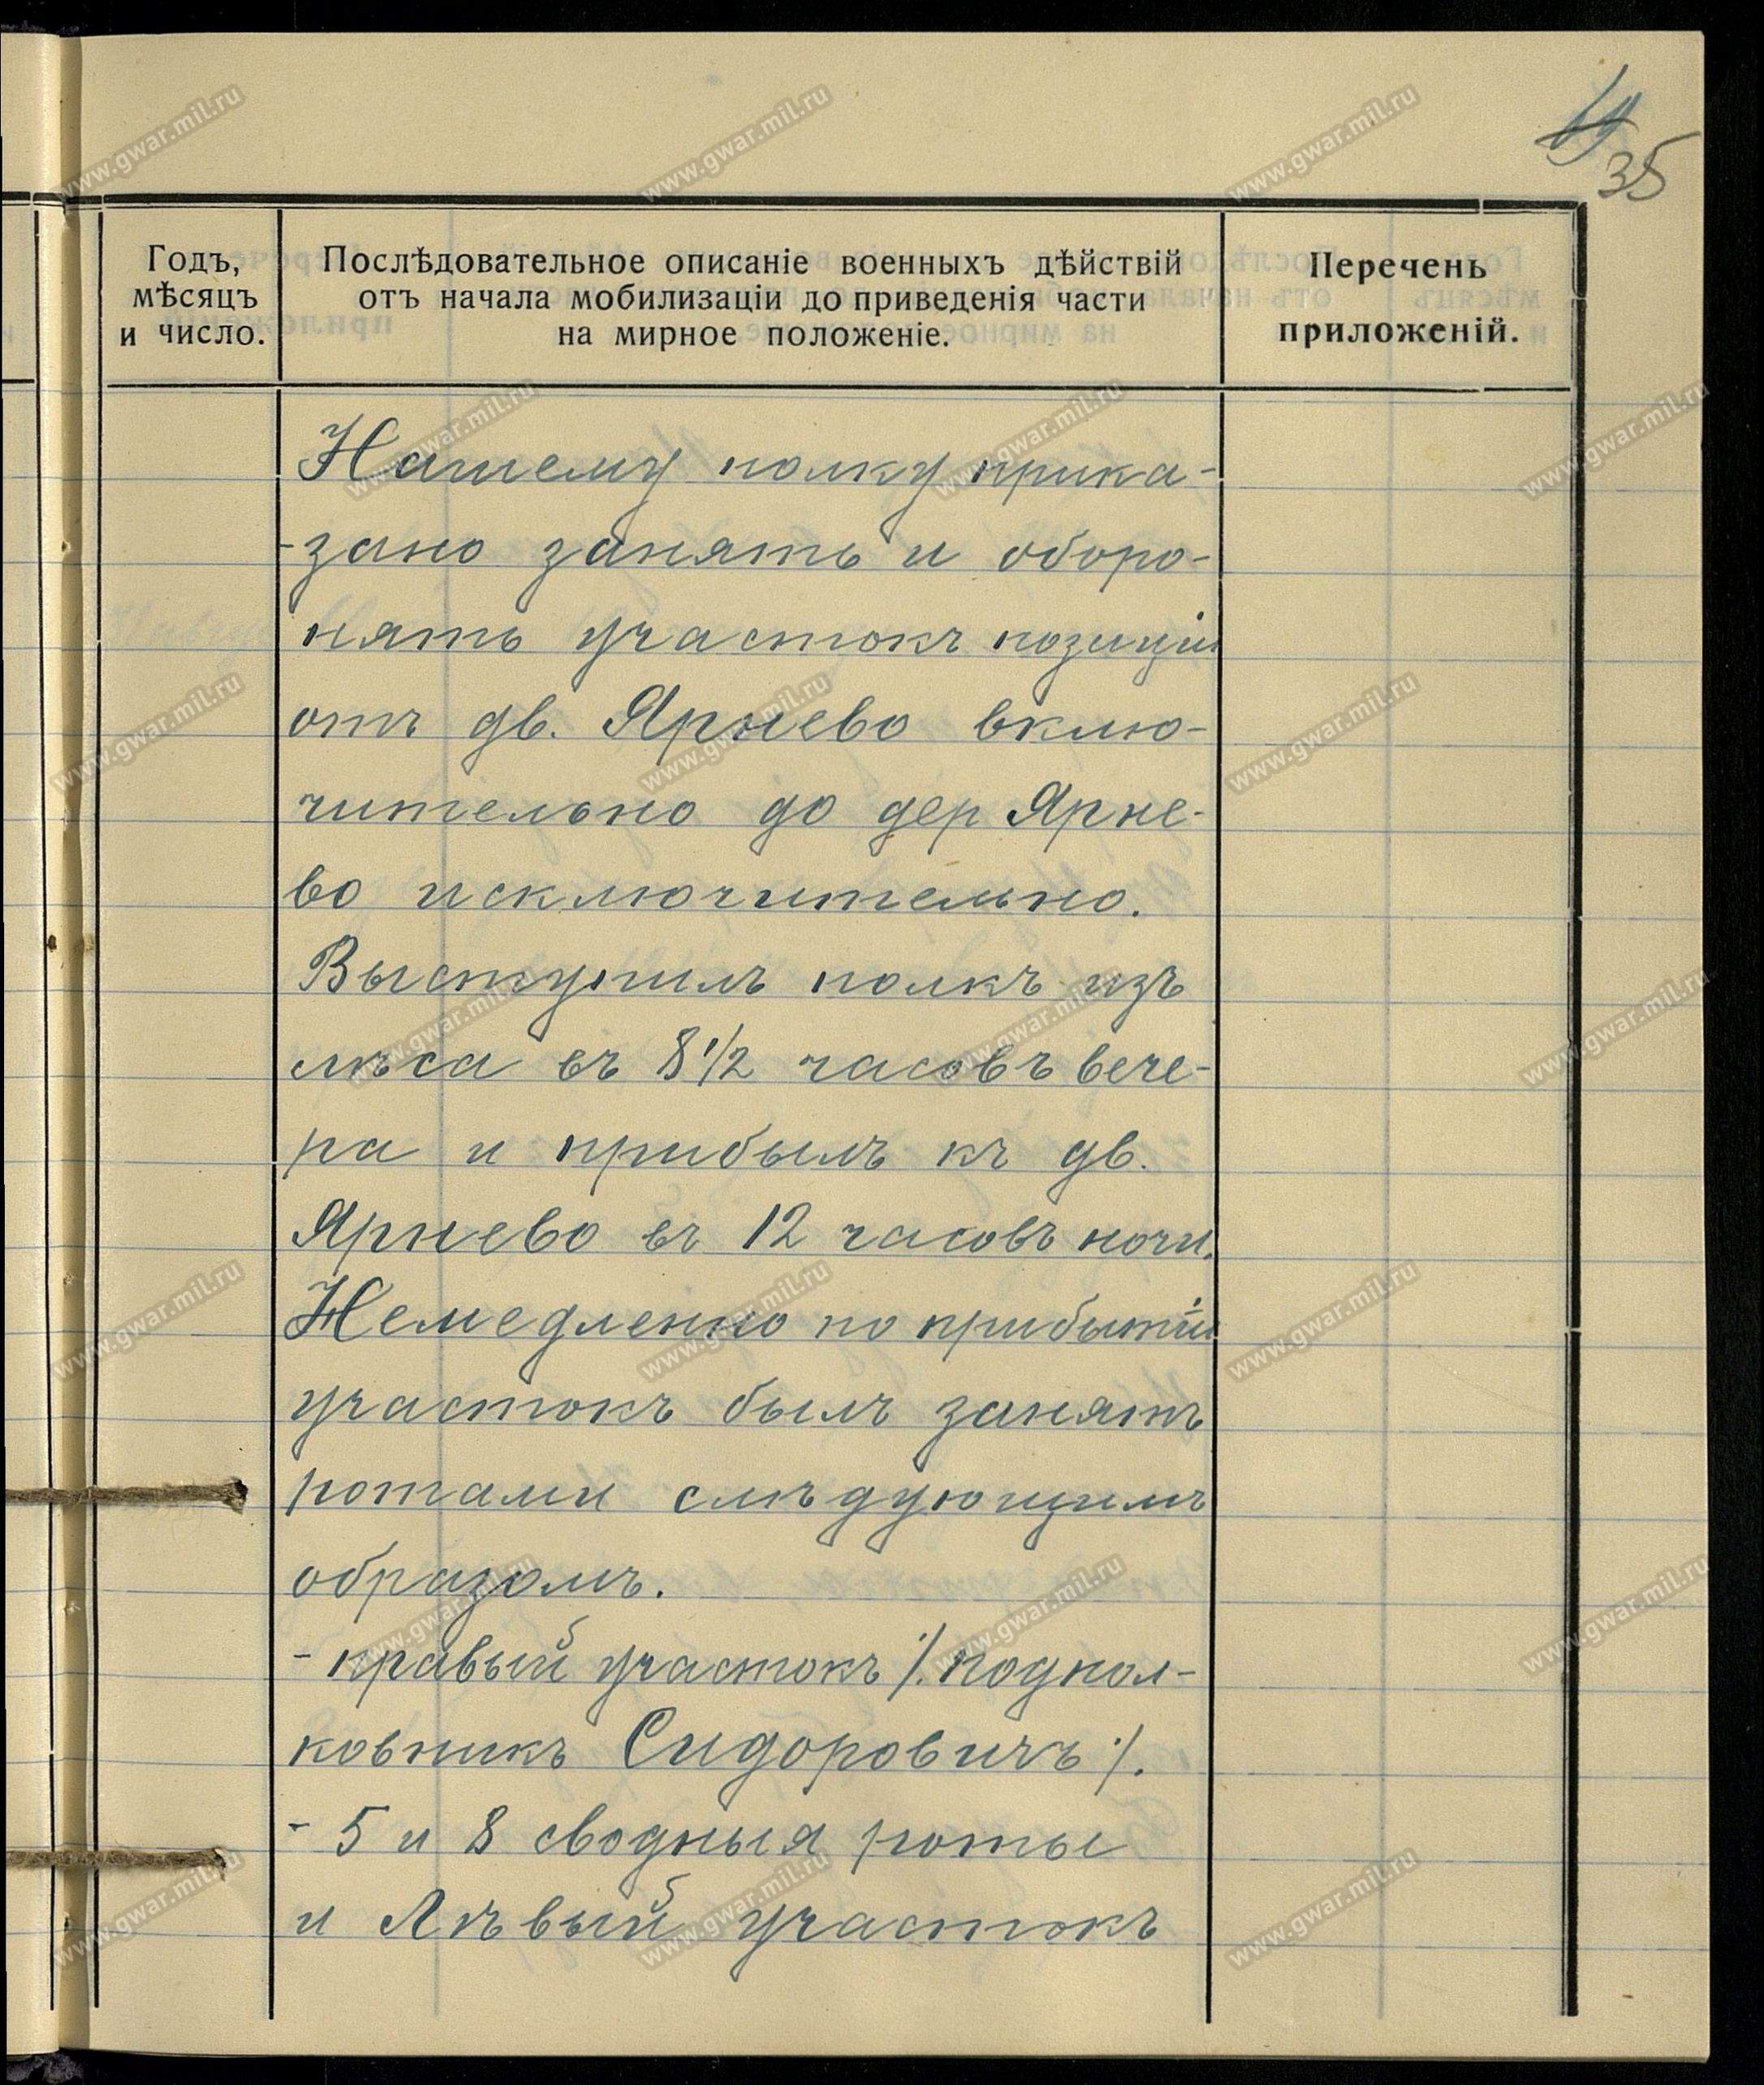 19
35
Годъ,
мѣсяцъ
и число.
Послѣдовательное описаніе военныхъ дѣйствій
отъ начала мобилизаціи до приведенія части
на мирное положеніе.
Перечень
приложеній.
Нашему полку прика-
-зано занять и оборо-
нять участокъ позиціи
отъ дв. Ярнево вклю-
чительно до дер Ярне-
во исключительно.
Выступилъ полкъ изъ
лѣса въ 8 1/2 часовъ вече-
ра и прибылъ къ дв.
Ярнево въ 12 часовъ ночи.
Немедленно по прибытіи
участокъ былъ занятъ
ротами слѣдующимъ
образомъ.
- правый участокъ /. подпол-
ковникъ Сидоровичъ ./.
- 5 и 8 сводныя роты
и Лѣвый участокъ
www.gwar.mil.ru